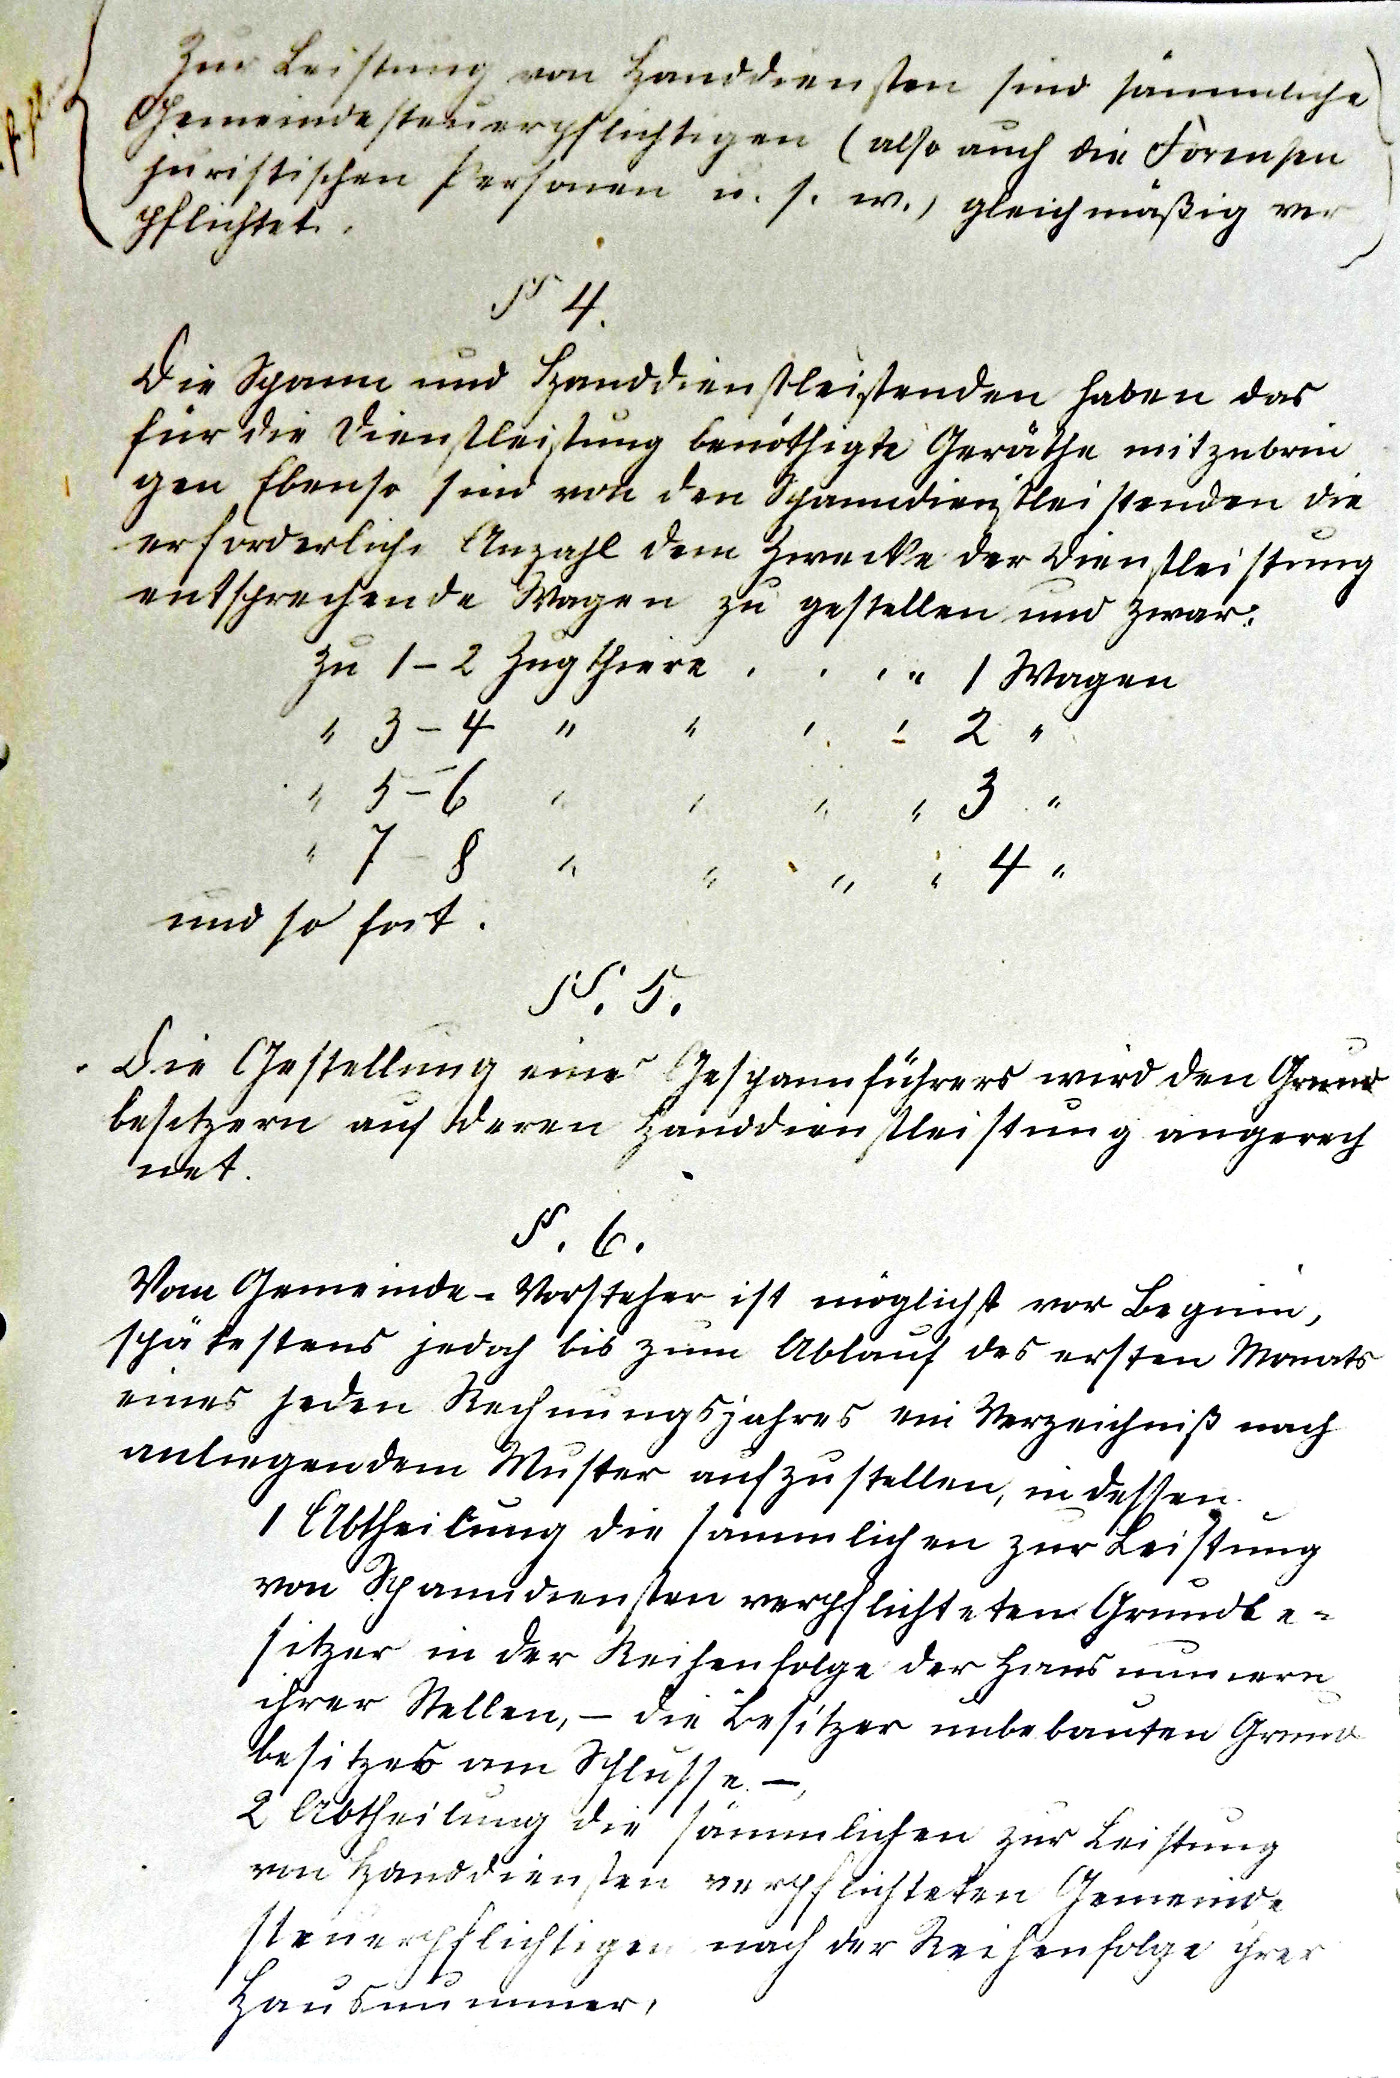 Zur Leistung von Handdiensten sind sämmtliche
Gemeindesteuerpflichtigen (also auch die Forensen
juristischen Personen u. s. w.) gleichmäßig ver
pflichtet.
§ 4.
Die Spann und Handdienstleistenden haben das
für die Dienstleistung benöthigte Geräthe mitzubrin
gen Ebenso sind von den Spanndienstleistenden die
erforderliche Anzahl dem Zwecke der Dienstleistung
entsprechende Wagen zu gestellen und zwar:
zu 1 – 2 Zugthiere . . . " 1 Wagen
" 3 – 4 " " " " 2 "
" 5 – 6 " " " " 3 "
" 7 – 8 " " " " 4 "
und so fort.
§. 5.
Die Gestellung eines Gespannführers wird den Grund
besitzern auf deren Handdienstleistung angerech
net.
§. 6.
Vom Gemeinde-Vorsteher ist möglichst vor Beginn,
spätestens jedoch bis zum Ablauf des ersten Monats
eines jeden Rechnungsjahres ein Verzeichniß nach
anliegendem Muster aufzustellen, in dessen
1 Abtheilung die sämmlichen zur Leistung
von Spanndiensten verpflichteten Grundbe-
sitzer in der Reihenfolge der Hausnummern
ihrer Stellen, – die Besitzer unbebauten Grund
besitzes am Schlusse –,
2 Abtheilung die sämmlichen zur Leistung
von Handdiensten verpflichteten Gemeinde
steuerpflichtigen nach der Reihenfolge ihrer
Hausnummer,